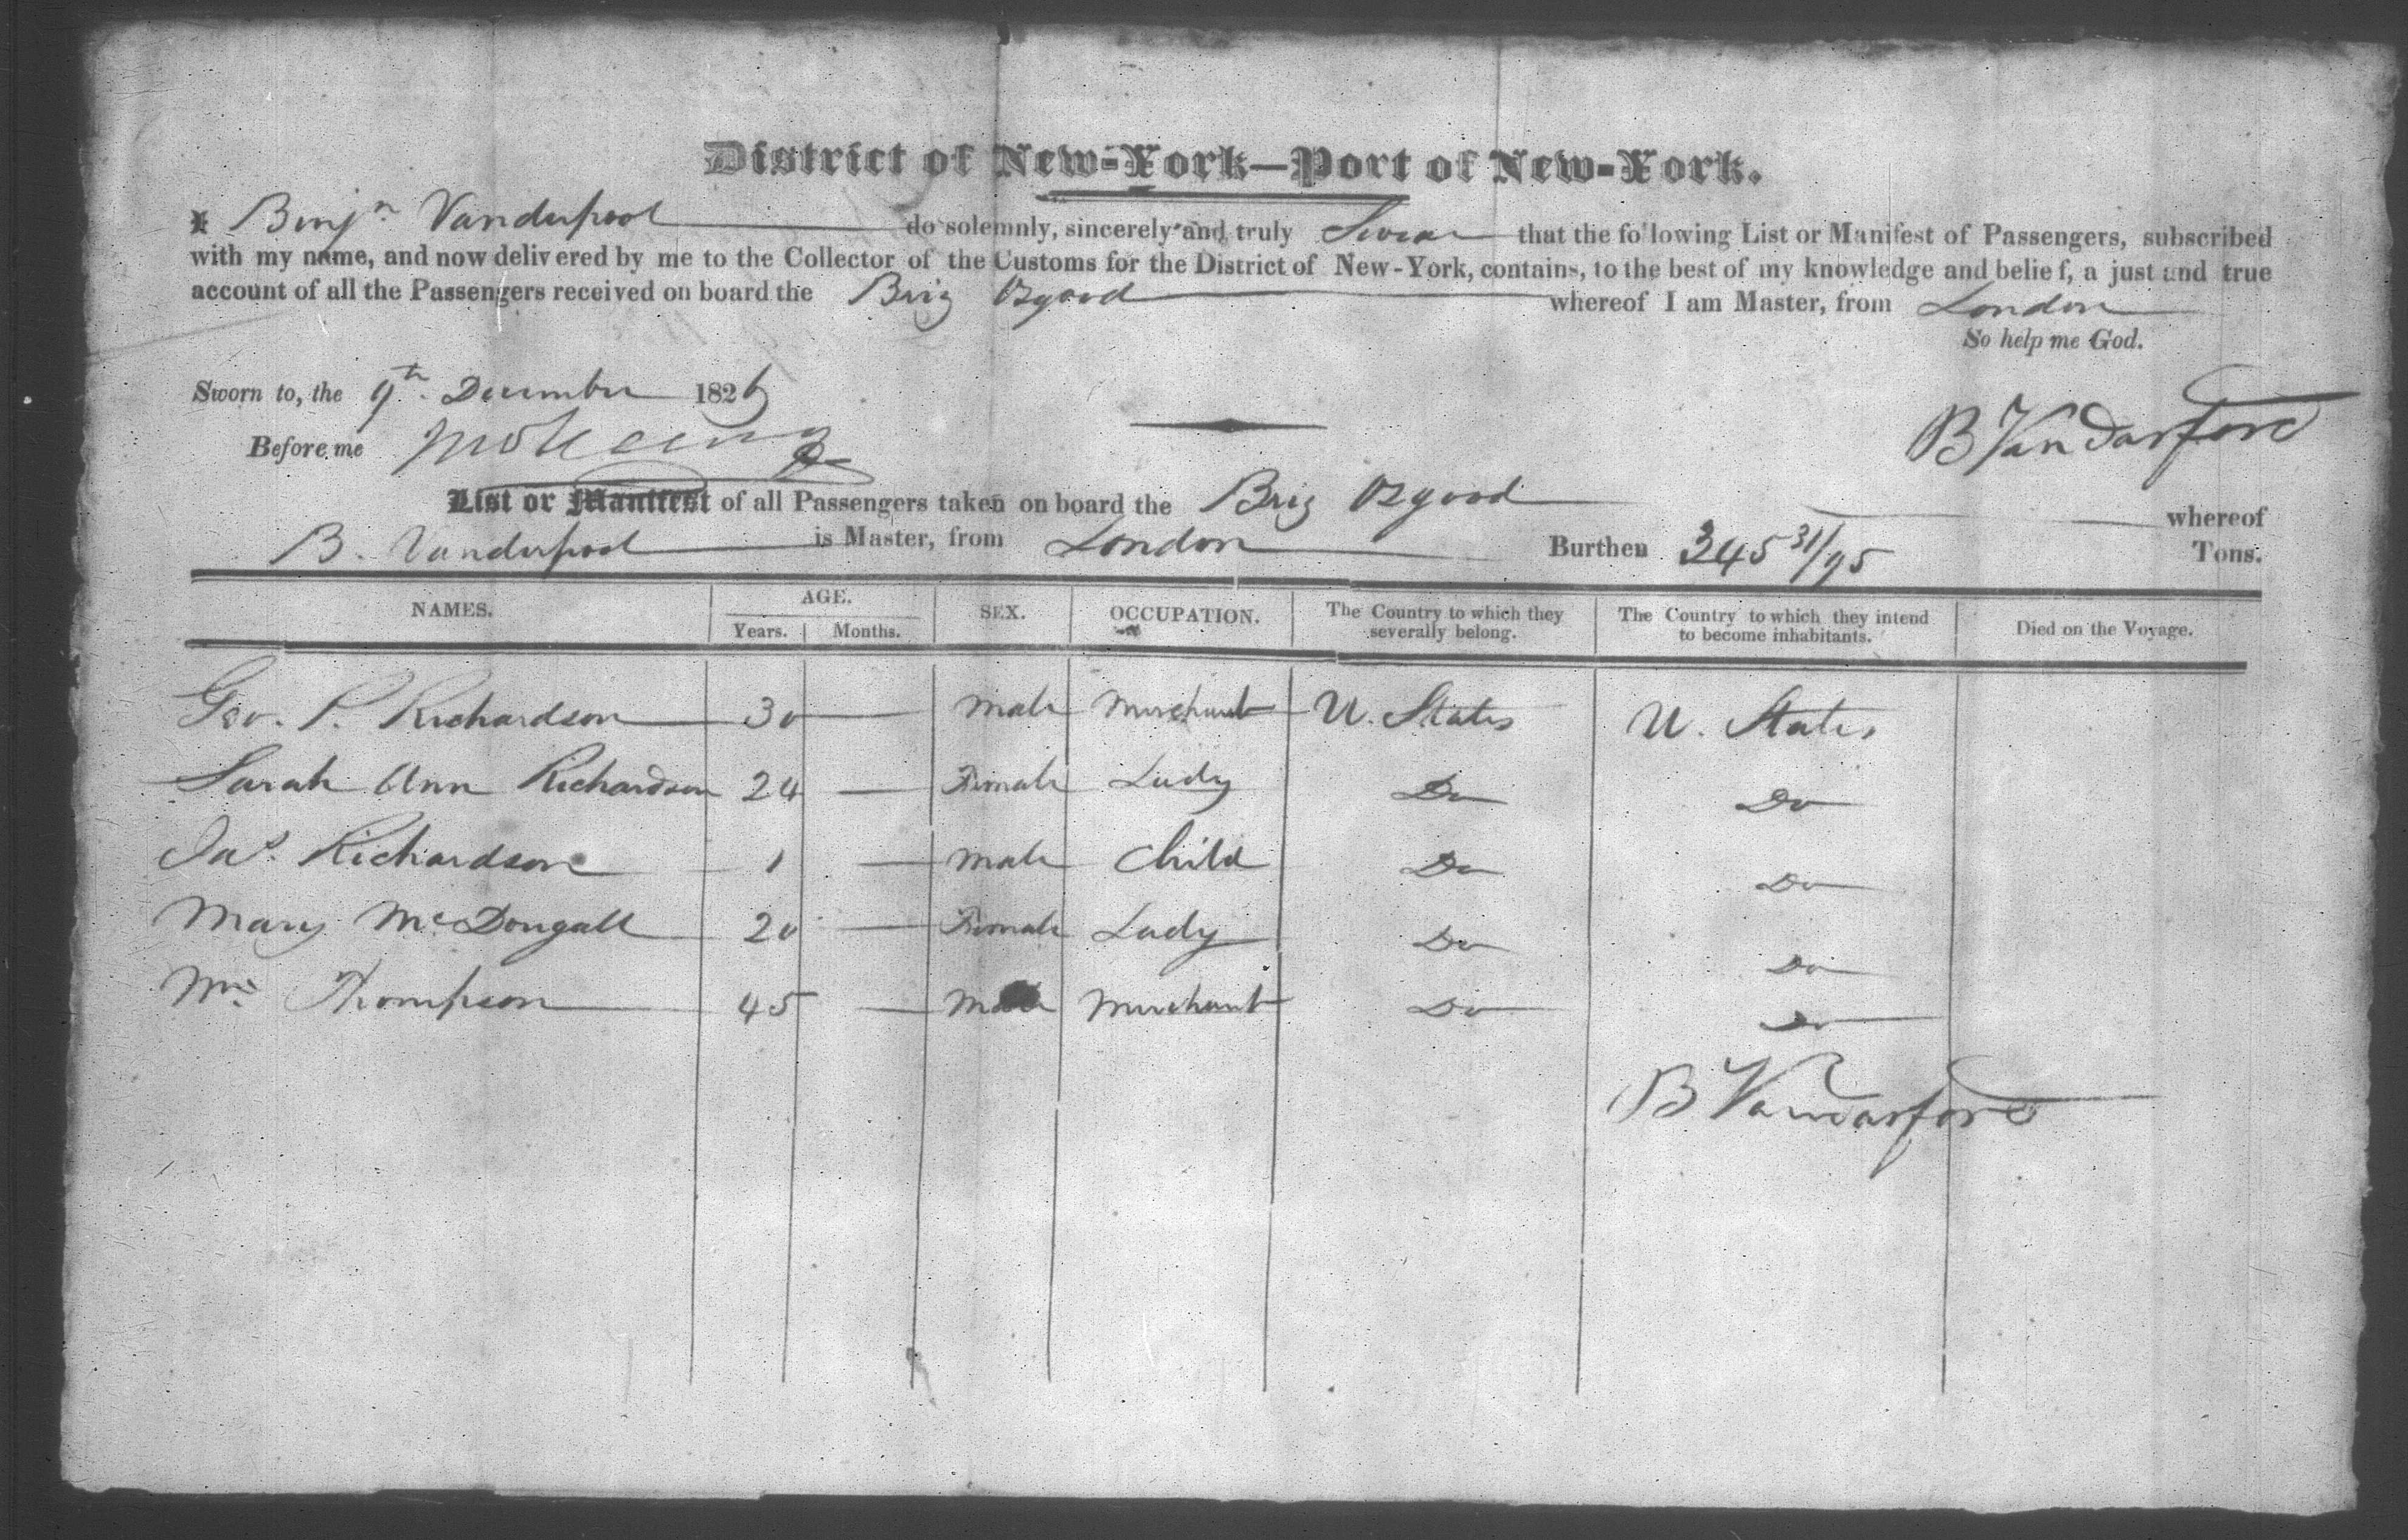 District of New-York—Port of New-York.
I Benjn Vanderpool do solemnly, sincerely and truly Swear that the following List or Manifest of Passengers, subscribed
with my name, and now delivered by me to the Collector of the Customs for the District of New-York, contains, to the best of my knowledge and belief, a just and true
account of all the Passengers received on board the Brig Osgood whereof I am Master, from London
So help me God.
Sworn to, the 9th December 1826
B Vandarford
Before me
List or Manifest of all Passengers taken on board the Brig Osgood whereof
B. Vanderpool is Master, from London Burthen 345 31/95 Tons.
NAMES. AGE. Years. Months. SEX. OCCUPATION. The Country to which they severally belong. The Country to which they intend to become inhabitants. Died on the Voyage.
Geo. P. Richardson 30 — male Merchant U. States U. States
Sarah Ann Richardson 24 — Female Lady Do Do
Jas. Richardson 1 — male Child Do Do
Mary McDougall 20 — Female Lady Do Do
Thompson 45 — male Merchant Do Do
B Vandarford